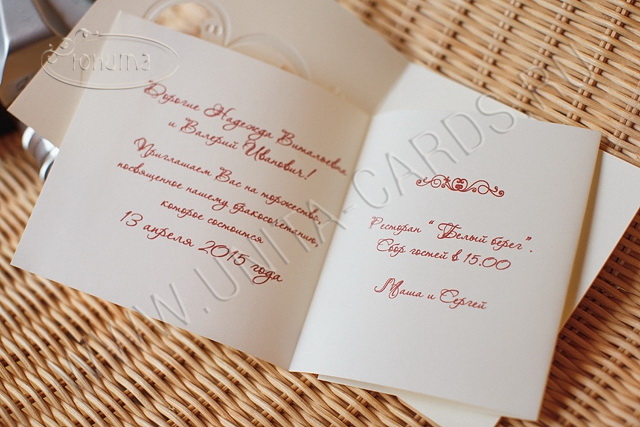 Юнита
"Дорогие Надежда Витальевна
и Валерий Иванович!
Приглашаем Вас на торжество,
посвященное нашему бракосочетанию,
которое состоится
13 апреля 2015 года
Ресторан "Белый берег".
Сбор гостей в 15.00
Маша и Сергей
WWW.UNITA-CARDS.RU